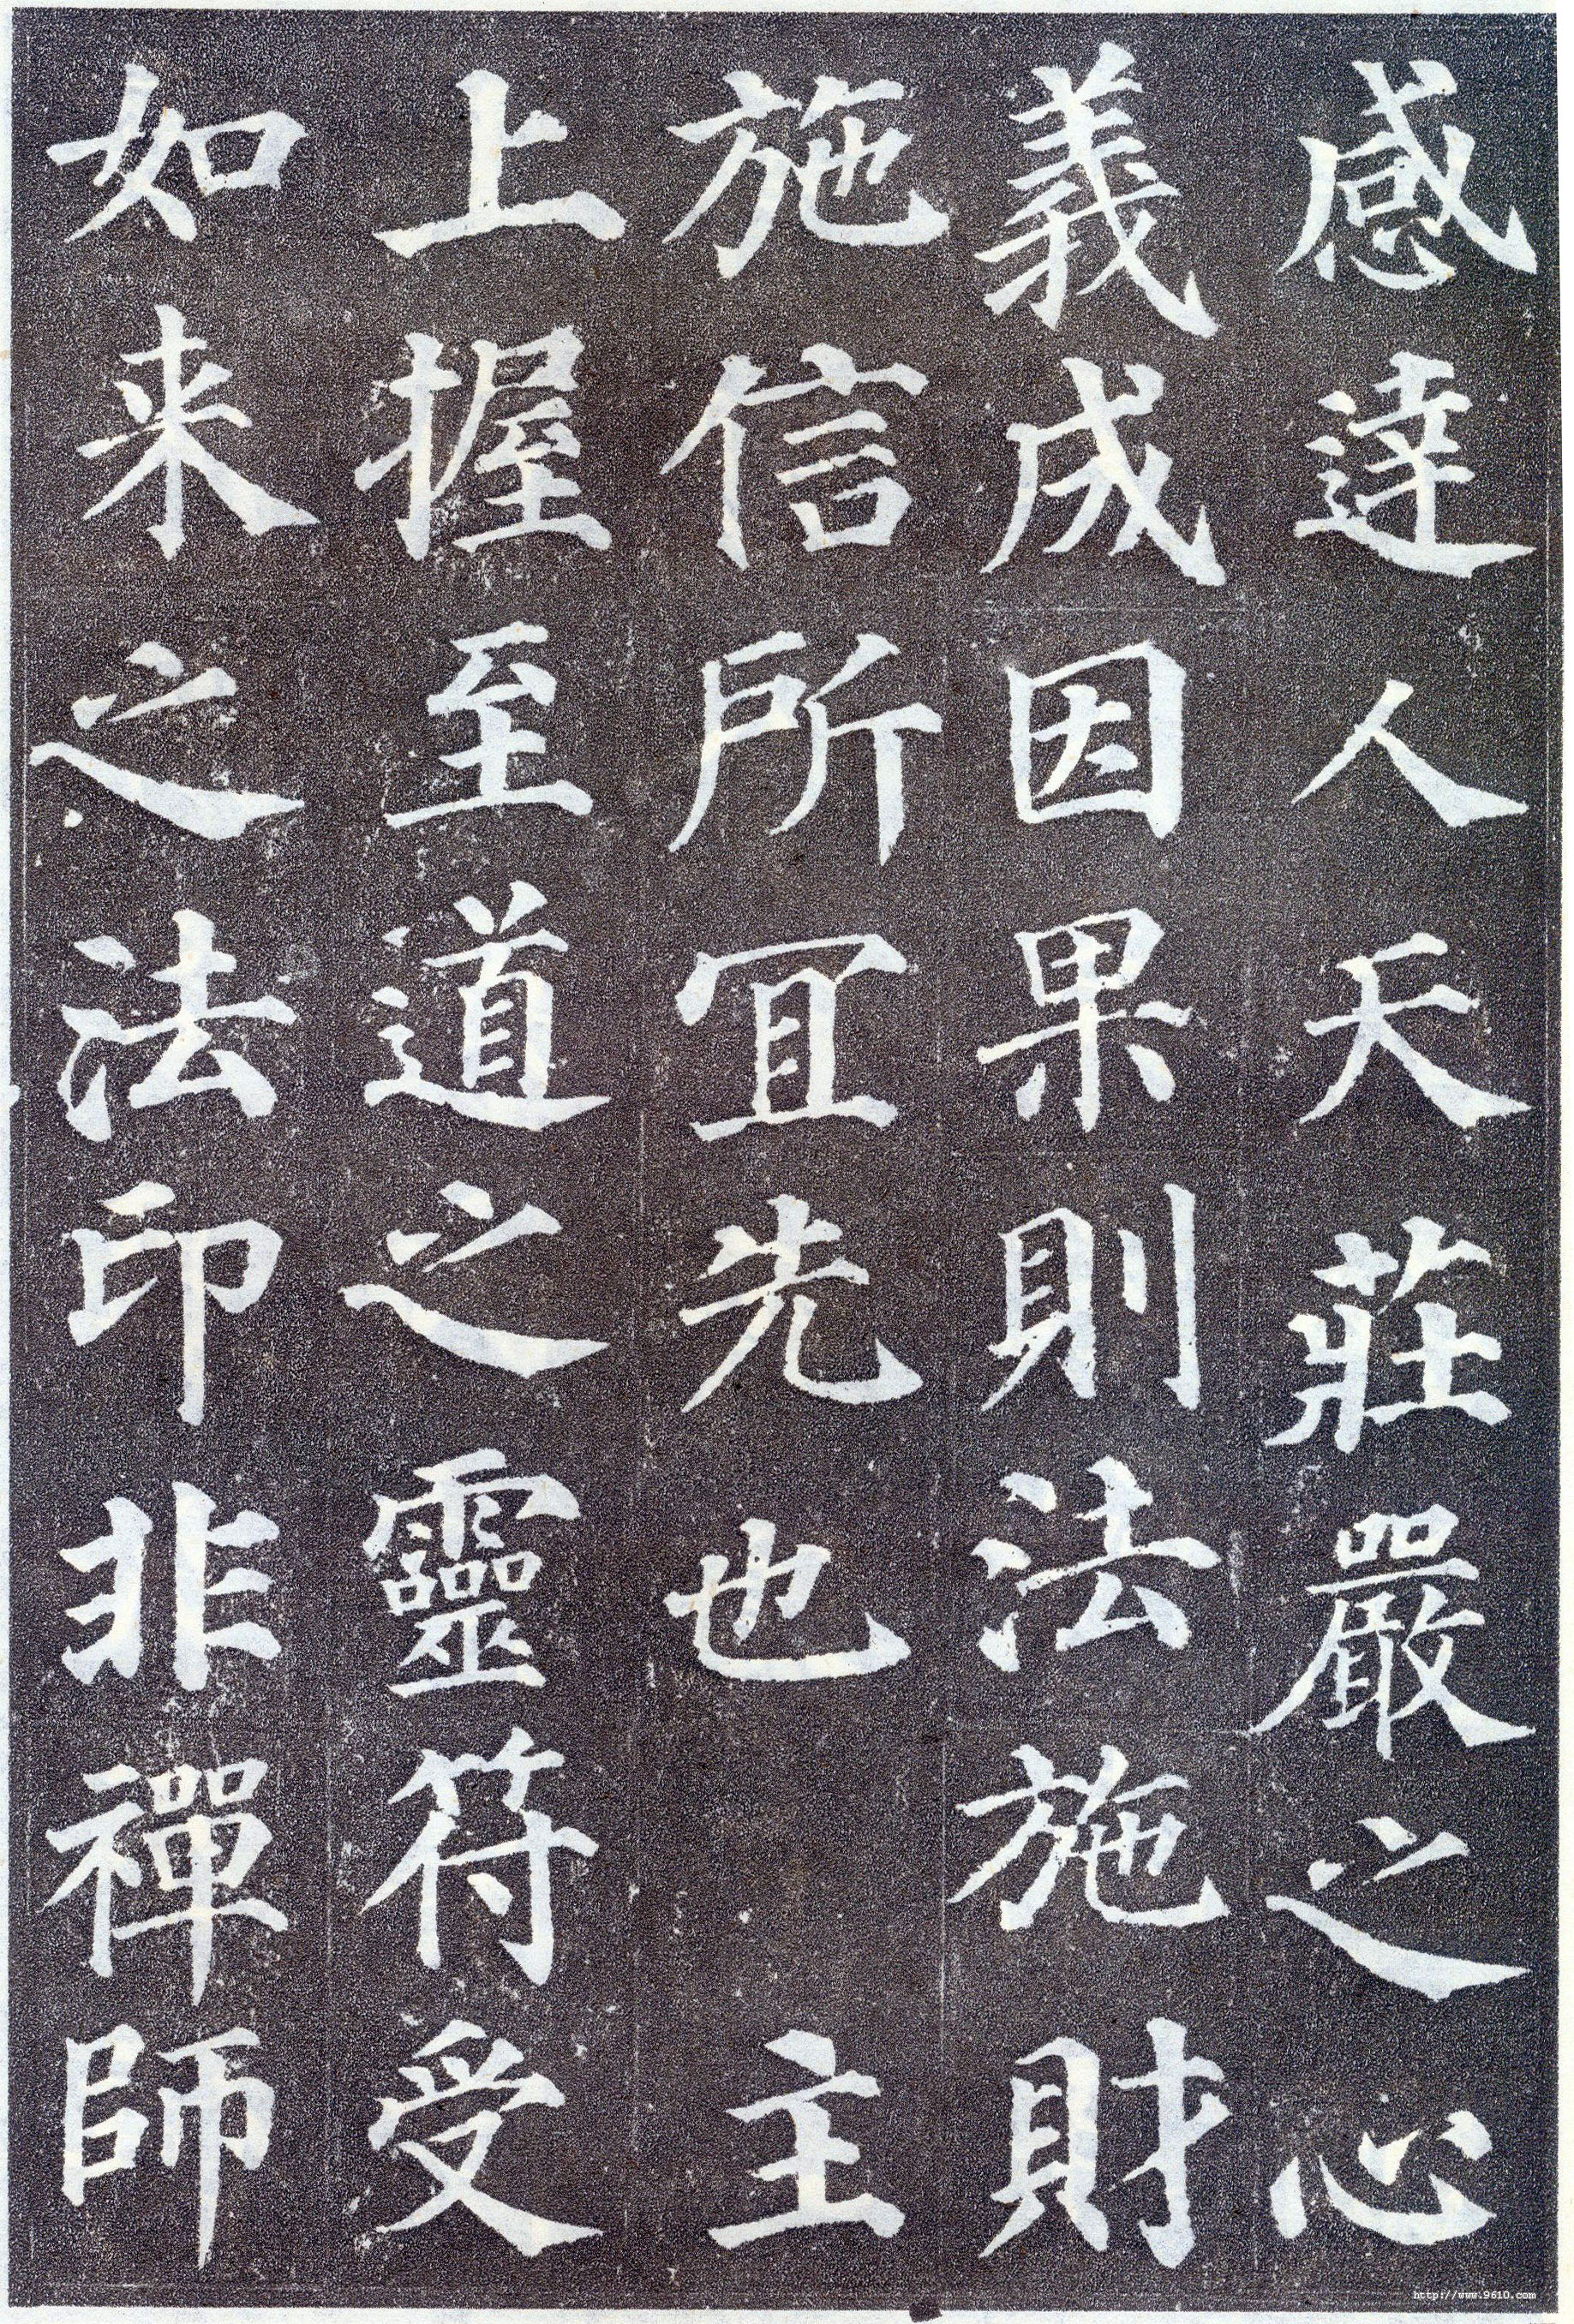 感達人天莊嚴之心
義成因果則法施財
施信所冝先也 主
上握至道之靈符受
如来之法印非禪師
http://www.9610.com